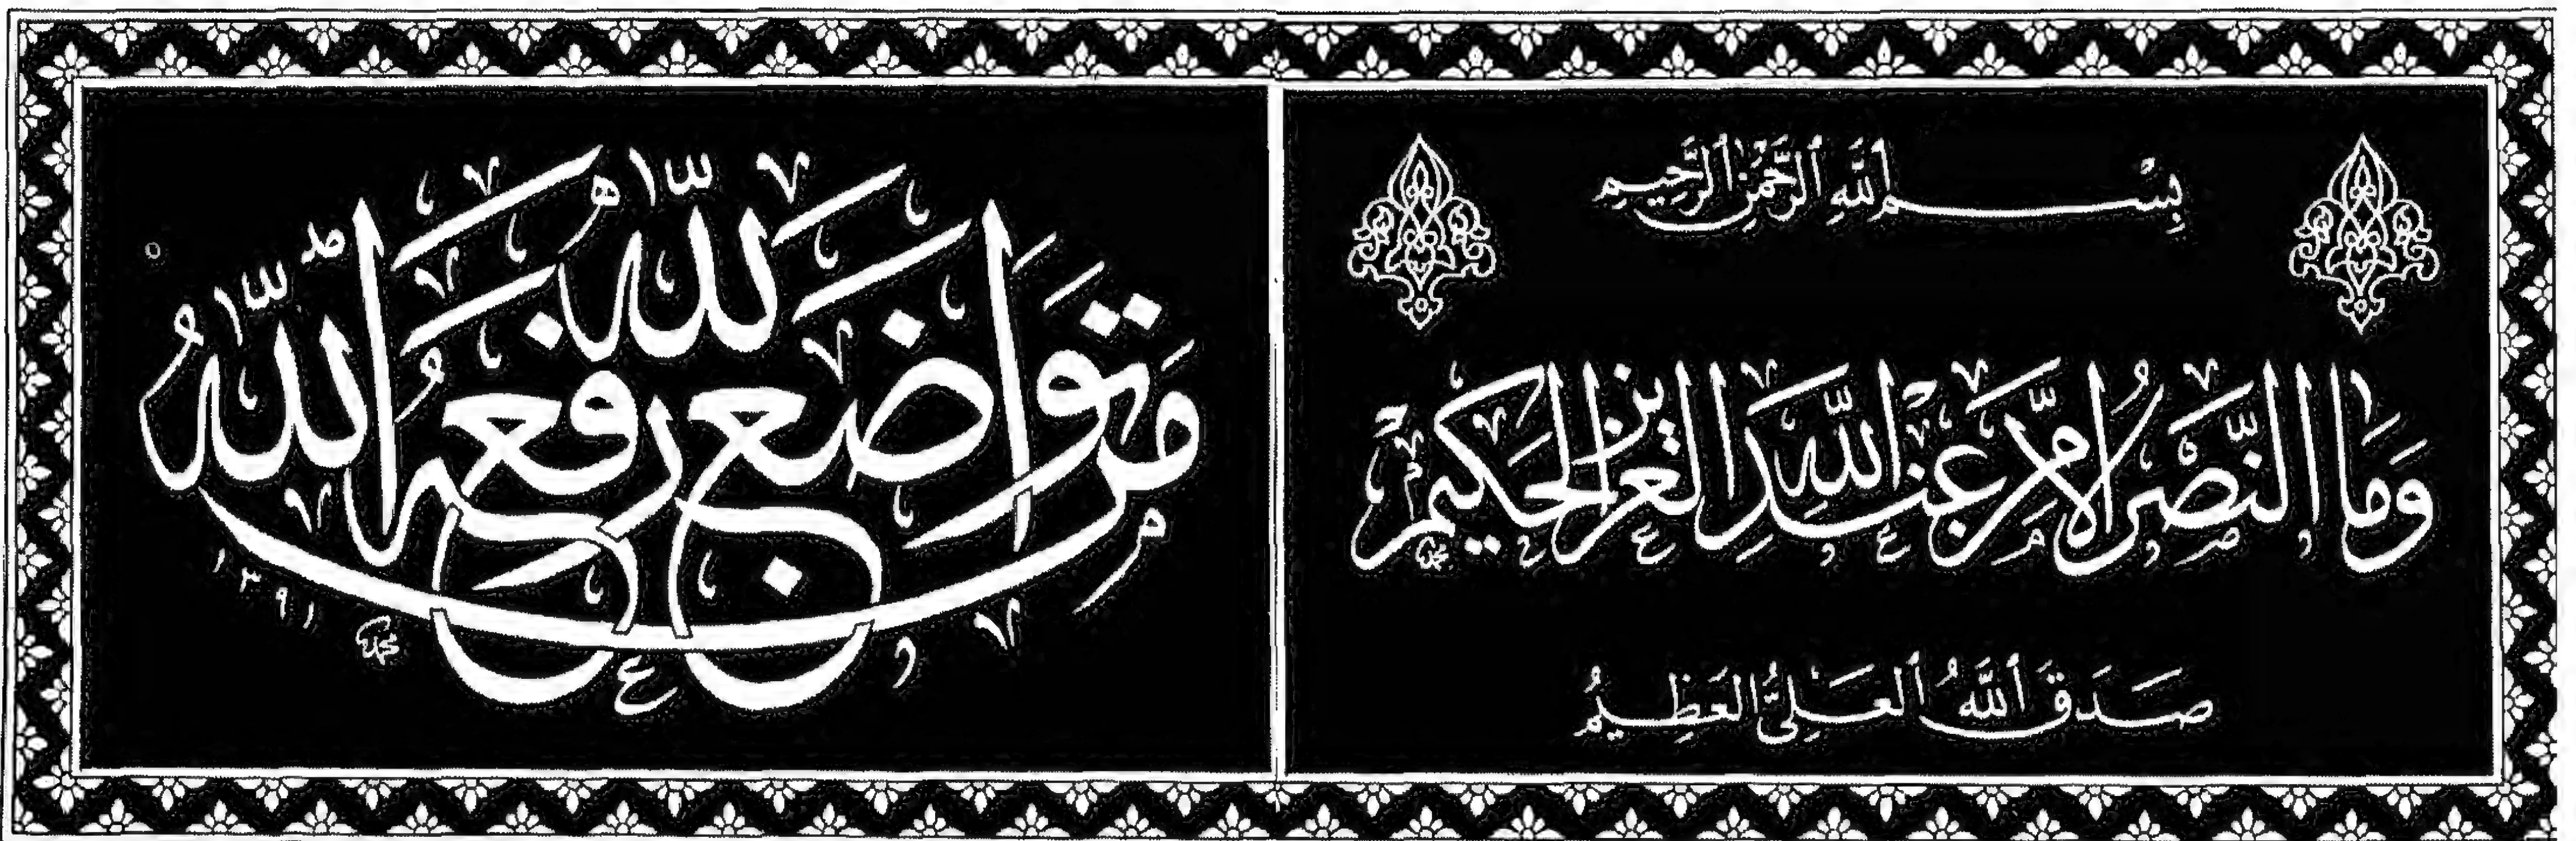 بِسْمِ ٱللَّهِ ٱلرَّحْمَٰنِ ٱلرَّحِيمِ
وَمَا النَّصْرُ إِلَّا مِنْ عِنْدِ اللَّهِ الْعَزِيزِ الْحَكِيمِ
صَدَقَ ٱللَّهُ ٱلْعَلِيُّ الْعَظِيمُ
مَنْ تَوَاضَعَ لِلَّهِ رَفَعَهُ اللَّهُ
محمد ١٣٩١